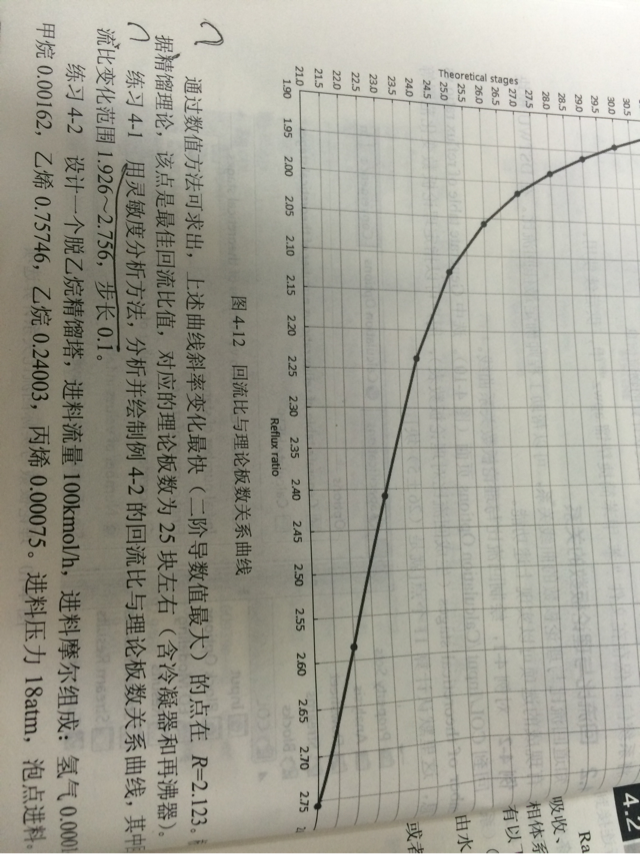 Theoretical stages
30.5
30.0
29.5
29.0
28.5
28.0
27.5
27.0
26.5
26.0
25.5
25.0
24.5
24.0
23.5
23.0
22.5
22.0
21.5
21.0
1.90 1.95 2.00 2.05 2.10 2.15 2.20 2.25 2.30 2.35 2.40 2.45 2.50 2.55 2.60 2.65 2.70 2.75
Reflux ratio
图 4-12 回流比与理论板数关系曲线
通过数值方法可求出，上述曲线斜率变化最快（二阶导数值最大）的点在 R=2.123。
据精馏理论，该点是最佳回流比值，对应的理论板数为 25 块左右（含冷凝器和再沸器）。
练习 4-1 用灵敏度分析方法，分析并绘制例 4-2 的回流比与理论板数关系曲线，其中
流比变化范围 1.926～2.756，步长 0.1。
练习 4-2 设计一个脱乙烷精馏塔，进料流量 100kmol/h，进料摩尔组成：氢气 0.000
甲烷 0.00162，乙烯 0.75746，乙烷 0.24003，丙烯 0.00075。进料压力 18atm，泡点进料。
4.2
Ra
吸收、
相体系
有以
由水
或者